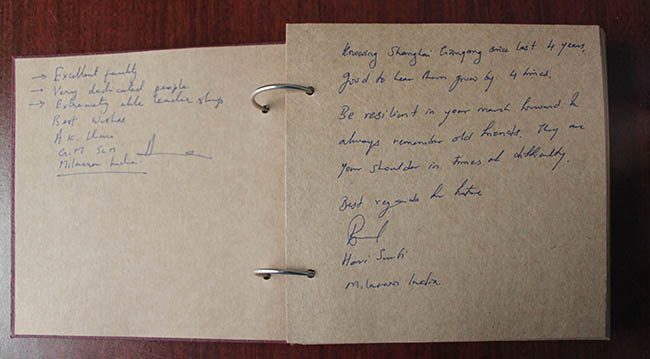 → Excellent faculty
→ Very dedicated people
→ Extremely able leadership
Best Wishes
A K.
G.M SCM
India
Knowing Shanghai since last 4 years,
Good to hear them grow by 4 times.
Be resilient in your march forward &
always remember old friends. They are
your shoulder in times of difficulty.
Best regards for future
Hari
India